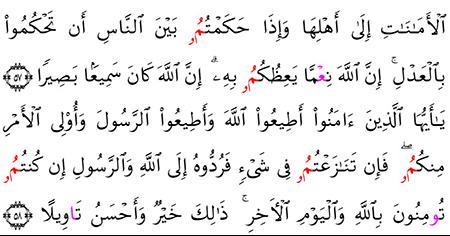 اَ۬لْأَمَٰنَٰتِ إِلَىٰ أَهْلِهَا وَإِذَا حَكَمْتُمُۥ بَيْنَ اَ۬لنَّاسِ أَن تَحْكُمُواْ
بِالْعَدْلِۚ إِنَّ اَ۬للَّهَ نِعْمَّا يَعِظُكُمُۥ بِهِۦۗ إِنَّ اَ۬للَّهَ كَانَ سَمِيعَۢا بَصِيرٗا ٥٧
يَٰأَيُّهَا اَ۬لَّذِينَ ءَامَنُواْ أَطِيعُواْ اُ۬للَّهَ وَأَطِيعُواْ اُ۬لرَّسُولَ وَأُوْلِى اِ۬لْأَمْرِ
مِنكُمُۥۖ فَإِن تَنَٰزَعْتُمُۥ فِى شَىْءٖ فَرُدُّوهُ إِلَى اَ۬للَّهِ وَالرَّسُولِ إِن كُنتُمُۥ
تُومِنُونَ بِاللَّهِ وَالْيَوْمِ اِ۬لْأٓخِرِۚ ذَٰلِكَ خَيْرٞ وَأَحْسَنُ تَاوِيلًا ٥٨